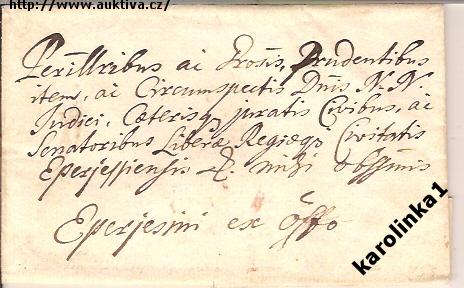 http://www.auktiva.cz/
Perillribus ac Prosis, Prudentibus
item, ac Circumspectis Dnis N. N.
Judici, Cæterisq juratis Civibus, ac
Senatoribus Liberæ, Regiæq Civitatis
Eperjessiensis &. mihi obssmis
Eperjesini ex offo
karolinka1